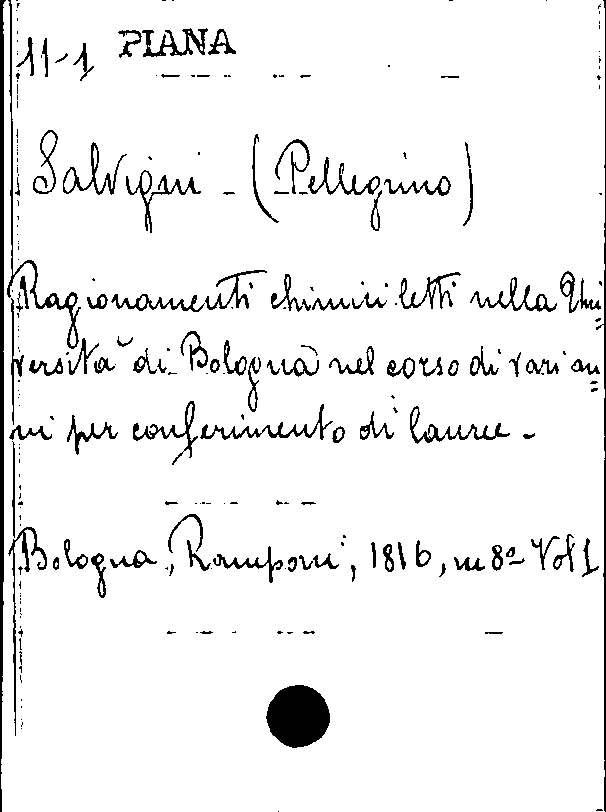 11-1 PIANA
Salvigni - (Pellegrino)
Ragionamenti chimici letti nella Uni=
versità di Bologna nel corso di vari an=
ni per conferimento di lauree -
Bologna, Ramponi, 1816, in 8º Vol 1